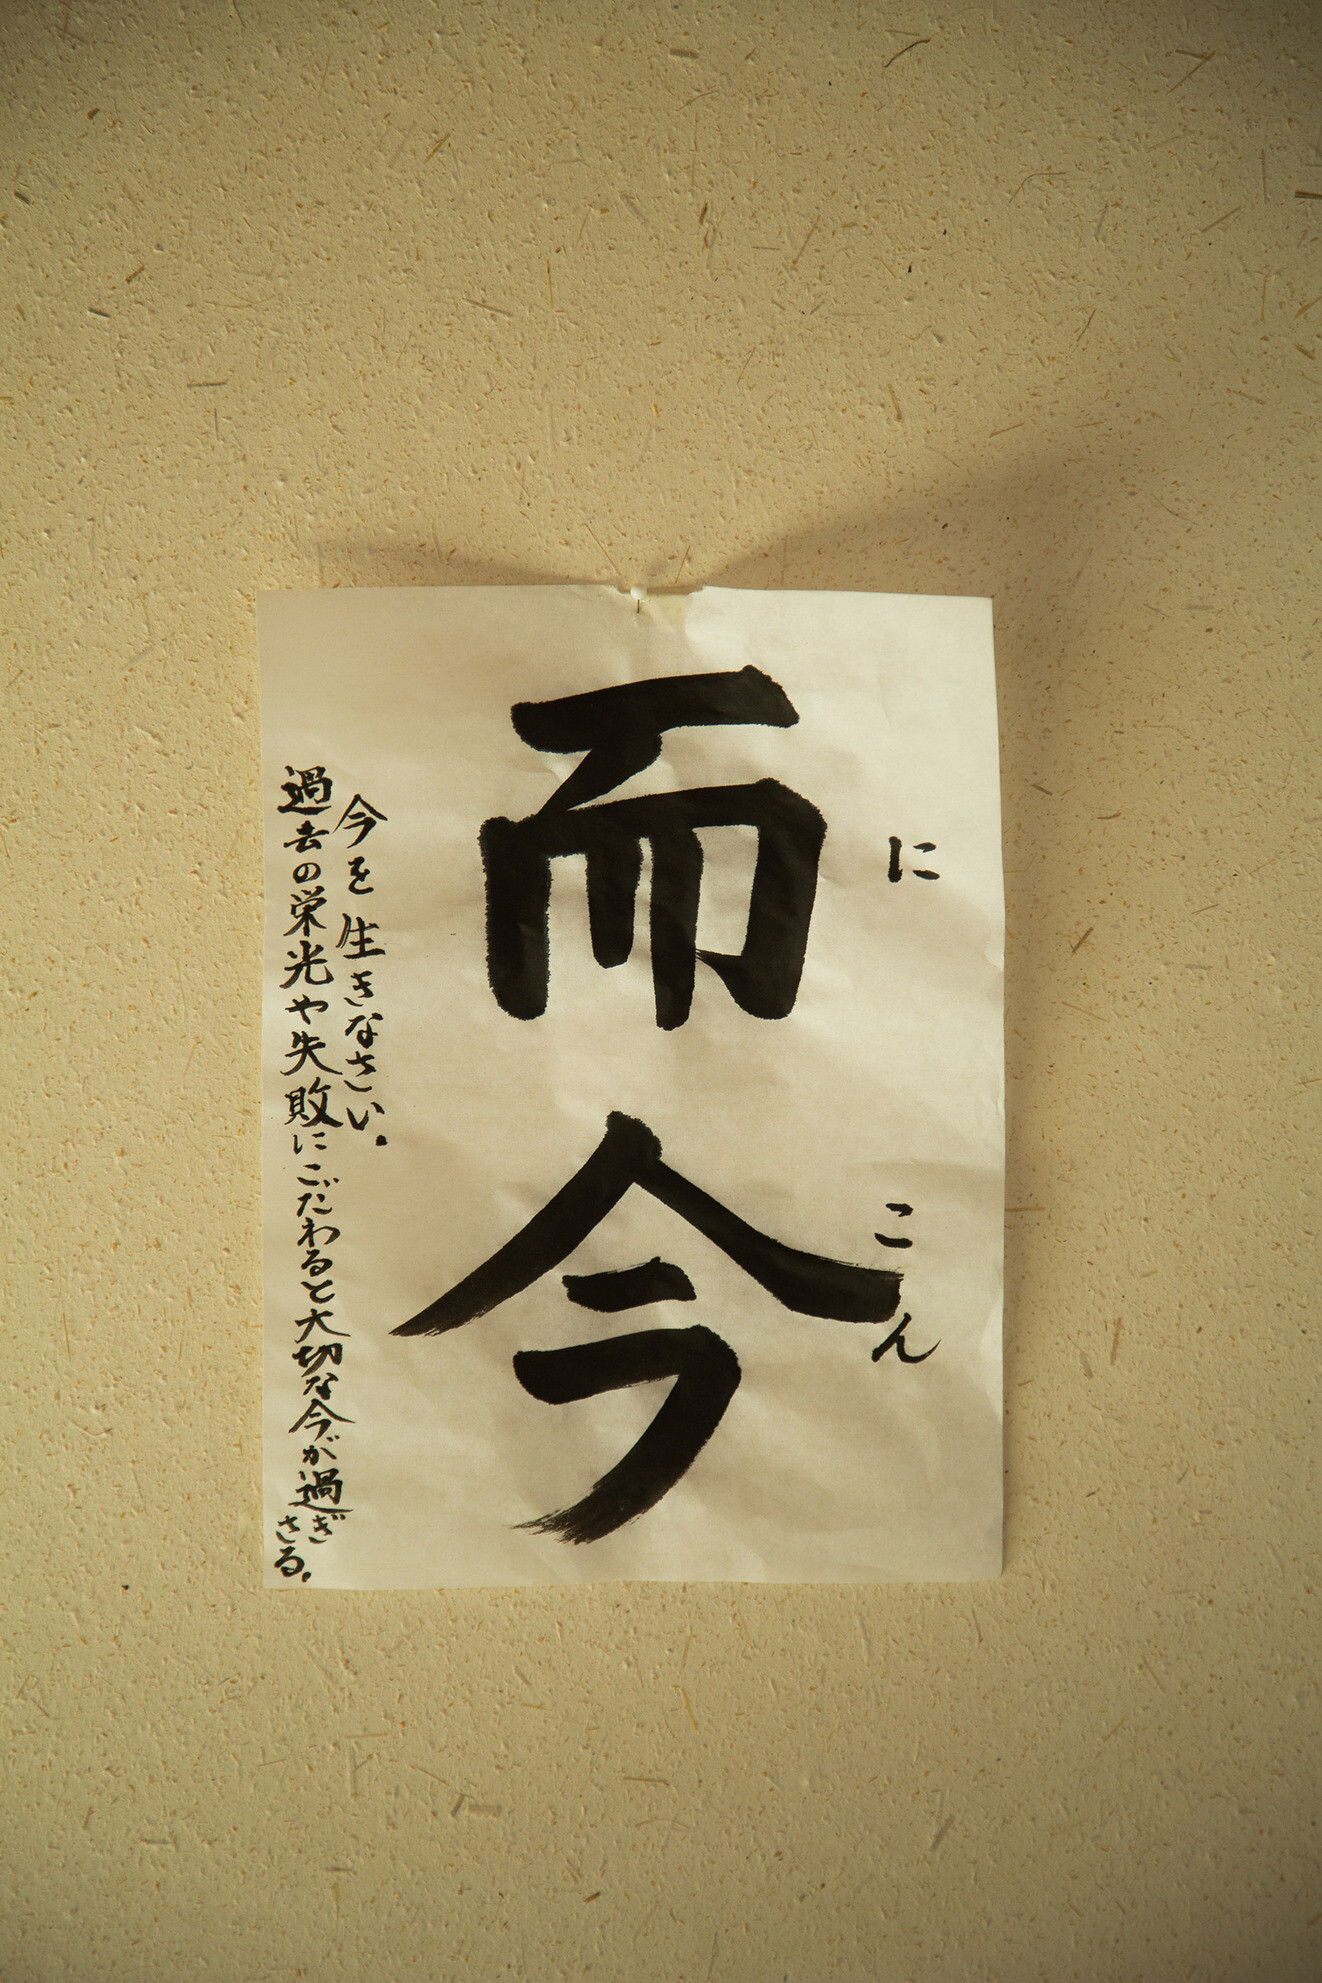 にこん
而今
今を生きなさい。
過去の栄光や失敗にこだわると大切な今が過ぎ
さる。